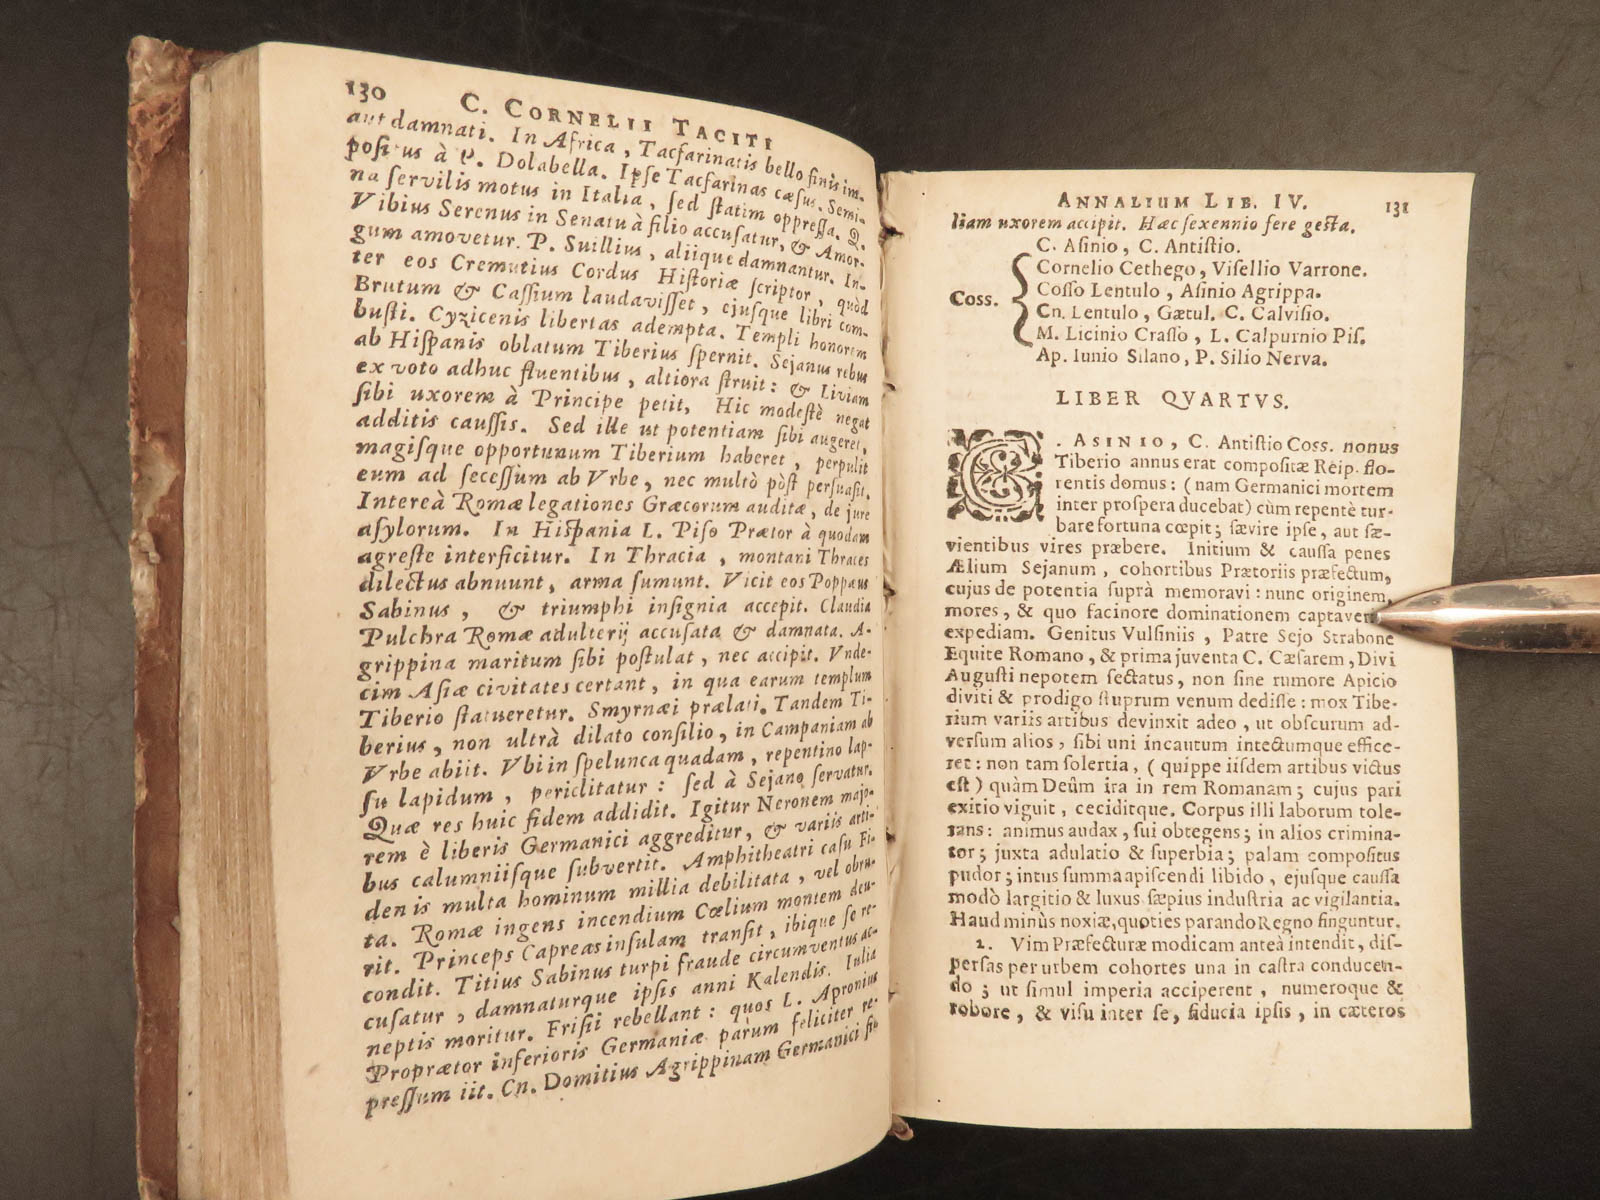 130
C. CORNELII TACITI
aut damnati. In Africa, Tacfarinatis bello finis im-
positus à P. Dolabella. Ipſe Tacfarinas cæſus. Semi-
na ſervilis motus in Italia, ſed ſtatim oppreſſa. Q.
Vibius Serenus in Senatu à filio accuſatur, & Amor-
gum amovetur. P. Suillius, aliique damnantur. In-
ter eos Cremutius Cordus Hiſtoriæ ſcriptor, quòd
Brutum & Caſſium laudaviſſet, ejuſque libri com-
buſti. Cyzicenis libertas adempta. Templi honorem
ab Hiſpanis oblatum Tiberius ſpernit. Sejanus rebus
ex voto adhuc fluentibus, altiora ſtruit: & Liviam
ſibi uxorem à Principe petit, Hic modeſtè negat
additis cauſſis. Sed ille ut potentiam ſibi augeret,
magiſque opportunum Tiberium haberet, perpulit
eum ad ſeceſſum ab Vrbe, nec multò pòſt perſuaſit.
Intereà Romæ legationes Græcorum auditæ, de jure
aſylorum. In Hiſpania L. Piſo Prætor à quodam
agreſte interficitur. In Thracia, montani Thraces
dilectus abnuunt, arma ſumunt. Vicit eos Poppæus
Sabinus, & triumphi inſignia accepit. Claudia
Pulchra Romæ adulterij accuſata & damnata. A-
grippina maritum ſibi poſtulat, nec accipit. Vnde-
cim Aſiæ civitates certant, in qua earum templum
Tiberio ſtatueretur. Smyrnæi prælati. Tandem Ti-
berius, non ultrà dilato conſilio, in Campaniam ab
Vrbe abiit. Vbi in ſpelunca quadam, repentino lap-
ſu lapidum, periclitatur: ſed à Sejano ſervatur.
Quæ res huic fidem addidit. Igitur Neronem majo-
rem è liberis Germanici aggreditur, & variis arti-
bus calumniiſque ſubvertit. Amphitheatri caſu Fi-
denis multa hominum millia debilitata, vel obru-
ta. Romæ ingens incendium Cœlium montem deu-
rit. Princeps Capreas inſulam tranſit, ibique ſe re-
condit. Titius Sabinus turpi fraude circumventus ac-
cuſatur, damnaturque ipſis anni Kalendis. Iulia
neptis moritur. Friſii rebellant: quos L. Apronius
Proprætor inferioris Germaniæ parùm feliciter re-
preſſum iit. Cn. Domitius Agrippinam Germanici fi-
ANNALIUM LIB. IV. 131
liam uxorem accipit. Hæc ſexennio fere geſta.
C. Aſinio, C. Antiſtio.
Cornelio Cethego, Viſellio Varrone.
Coſſ. Coſſo Lentulo, Aſinio Agrippa.
Cn. Lentulo, Gætul. C. Calviſio.
M. Licinio Craſſo, L. Calpurnio Piſ.
Ap. Iunio Silano, P. Silio Nerva.
LIBER QVARTVS.
C. ASINIO, C. Antiſtio Coss. nonus
Tiberio annus erat compoſitæ Reip. flo-
rentis domus: (nam Germanici mortem
inter proſpera ducebat) cùm repentè tur-
bare fortuna cœpit; ſævire ipſe, aut ſæ-
vientibus vires præbere. Initium & cauſſa penes
Ælium Sejanum, cohortibus Prætoriis præfectum,
cujus de potentia ſuprà memoravi: nunc originem,
mores, & quo facinore dominationem captaver
expediam. Genitus Vulſiniis, Patre Sejo Strabone
Equite Romano, & prima juventa C. Cæſarem, Divi
Auguſti nepotem ſectatus, non ſine rumore Apicio
diviti & prodigo ſtuprum venum dediſſe: mox Tibe-
rium variis artibus devinxit adeo, ut obſcurum ad-
verſum alios, ſibi uni incautum intectumque effice-
ret: non tam ſolertia, (quippe iiſdem artibus victus
eſt) quàm Deûm ira in rem Romanam; cujus pari
exitio viguit, ceciditque. Corpus illi laborum tole-
rans: animus audax, ſui obtegens; in alios crimina-
tor; juxta adulatio & ſuperbia; palam compoſitus
pudor; intus ſumma apiſcendi libido, ejuſque cauſſa
modò largitio & luxus ſæpius induſtria ac vigilantia.
Haud minùs noxiæ, quoties parando Regno finguntur.
2. Vim Præfecturæ modicam anteà intendit, diſ-
perſas per urbem cohortes una in caſtra conducen-
do; ut ſimul imperia acciperent, numeroque &
robore, & viſu inter ſe, fiducia ipſis, in cæteros